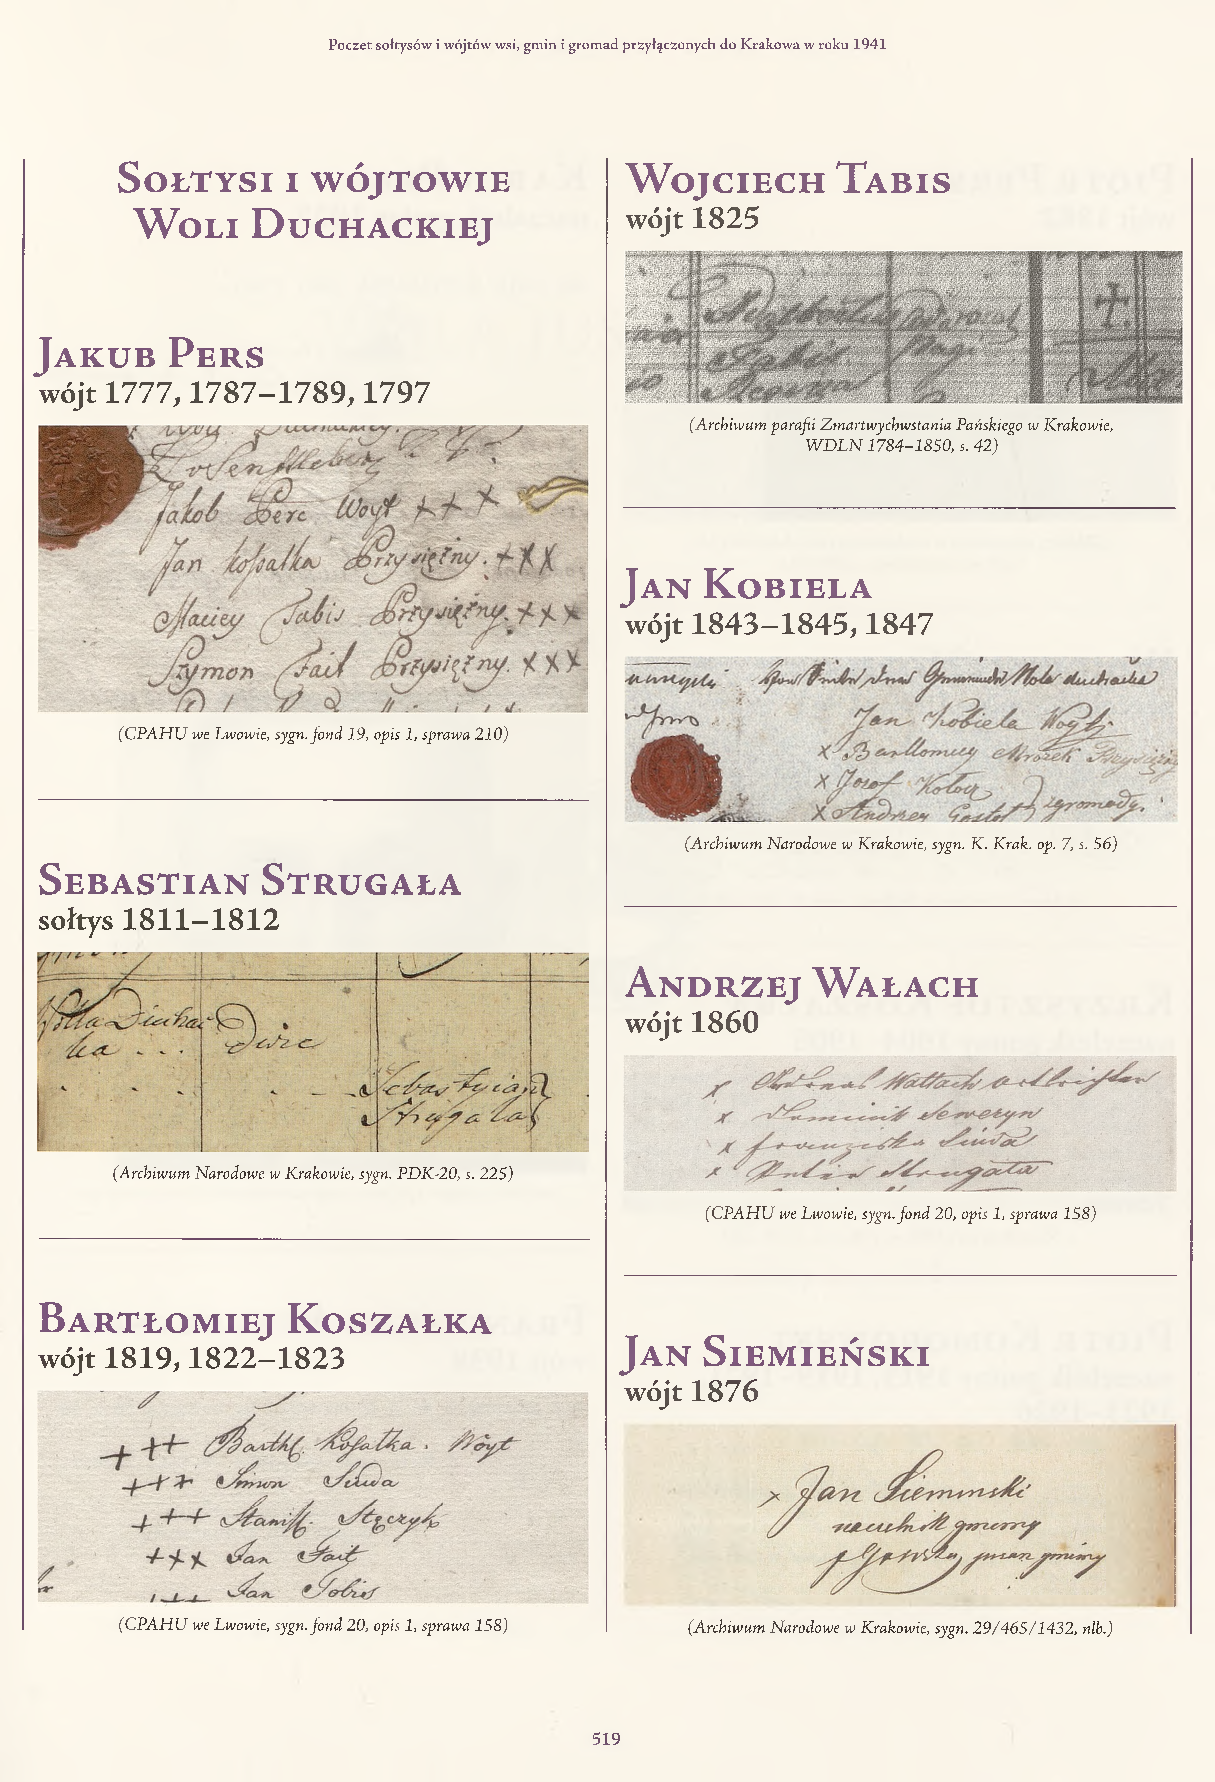 Poczet sołtysów i wójtów wsi, gmin i gromad przyłączonych do Krakowa w roku 1941
Sołtysi i wójtowie
Woli Duchackiej
Jakub Pers
wójt 1777, 1787–1789, 1797
Jakob Perc Woyt + + x
Jan Kosałka Przysiężny. + x x
Maciey Tabis Przysiężny. x x x
Szymon Fait Przysiężny. x x x
(CPAHU we Lwowie, sygn. fond 19, opis 1, sprawa 210)
Sebastian Strugała
sołtys 1811–1812
Wolla Duchac
ka . . . dwie
Sebastyian
Strugala
(Archiwum Narodowe w Krakowie, sygn. PDK-20, s. 225)
Bartłomiej Koszałka
wójt 1819, 1822–1823
+ + + Barthl. Kosatka. Woyt
+ + + Simon Siuda
+ + + Stanisl. Stęczyk
+ x x Jan Fait
+ + + Jan Tobis
(CPAHU we Lwowie, sygn. fond 20, opis 1, sprawa 158)
Wojciech Tabis
wójt 1825
Tabis
(Archiwum parafii Zmartwychwstania Pańskiego w Krakowie,
WDLN 1784–1850, s. 42)
Jan Kobiela
wójt 1843–1845, 1847
Wola duchacka
Jan Kobiela Woyt
x Bartlomiey Mrozek Przysiężny
x Josef Kołocz
x Andrzey zgromady.
(Archiwum Narodowe w Krakowie, sygn. K. Krak. op. 7, s. 56)
Andrzej Wałach
wójt 1860
x Andreas Wallach ortsrichter
x Dominik Seweryn
x Franziska Siuda
x Strugała
(CPAHU we Lwowie, sygn. fond 20, opis 1, sprawa 158)
Jan Siemieński
wójt 1876
x Jan Sieminski
naczelnik gminy
pisarz gminy
(Archiwum Narodowe w Krakowie, sygn. 29/465/1432, nlb.)
519